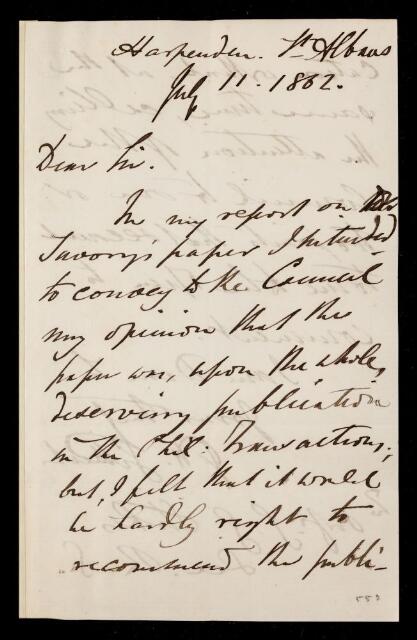 Harpenden. St Albans
July 11. 1862.
Dear Sir.
In my report on Mr
Savory's paper I intended
to convey to the Council
my opinion that the
paper was, upon the whole,
deserving publication
in the Phil: Transactions;
but, I felt that it would
be hardly right to
recommend the publi-